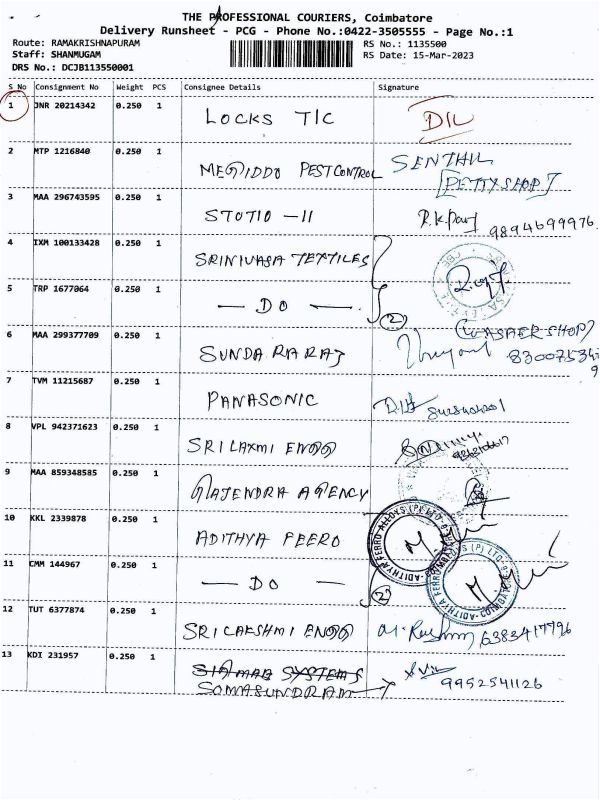 THE PROFESSIONAL COURIERS, Coimbatore
Delivery Runsheet - PCG - Phone No.:0422-3505555 - Page No.:1
Route: RAMAKRISHNAPURAM
RS No.: 1135500
Staff: SHANMUGAM
RS Date: 15-Mar-2023
DRS No.: DCJB113550001
S No Consignment No Weight PCS Consignee Details Signature
1 JNR 20214342 0.250 1 LOCKS TIC DIL
2 MTP 1216840 0.250 1 MEGIDDO PEST CONTROL SENTHIL
[PETTYSHOP]
3 MAA 296743595 0.250 1 STOTIO - 11 9894699976
4 IXM 100133428 0.250 1 SRINIVASA TEXTILES
5 TRP 1677064 0.250 1 — DO — 2
6 MAA 299377709 0.250 1 SUNDARARAJ
7 TVM 11215687 0.250 1 PANASONIC
8 VPL 942371623 0.250 1 SRI LAXMI ENGG
9 MAA 859348585 0.250 1 GAJENDRA AGENCY
10 KKL 2339878 0.250 1 ADITHYA FEERO
ADITHYA FERRO ALLOYS (P) LTD
11 CMM 144967 0.250 1 — DO — 2
ADITHYA FERRO ALLOYS (P) LTD
12 TUT 6377874 0.250 1 SRI LAKSHMI ENGG 6383417796
13 KDI 231957 0.250 1 SIAMAB SYSTEMS
SOMASUNDRAM 9952541126